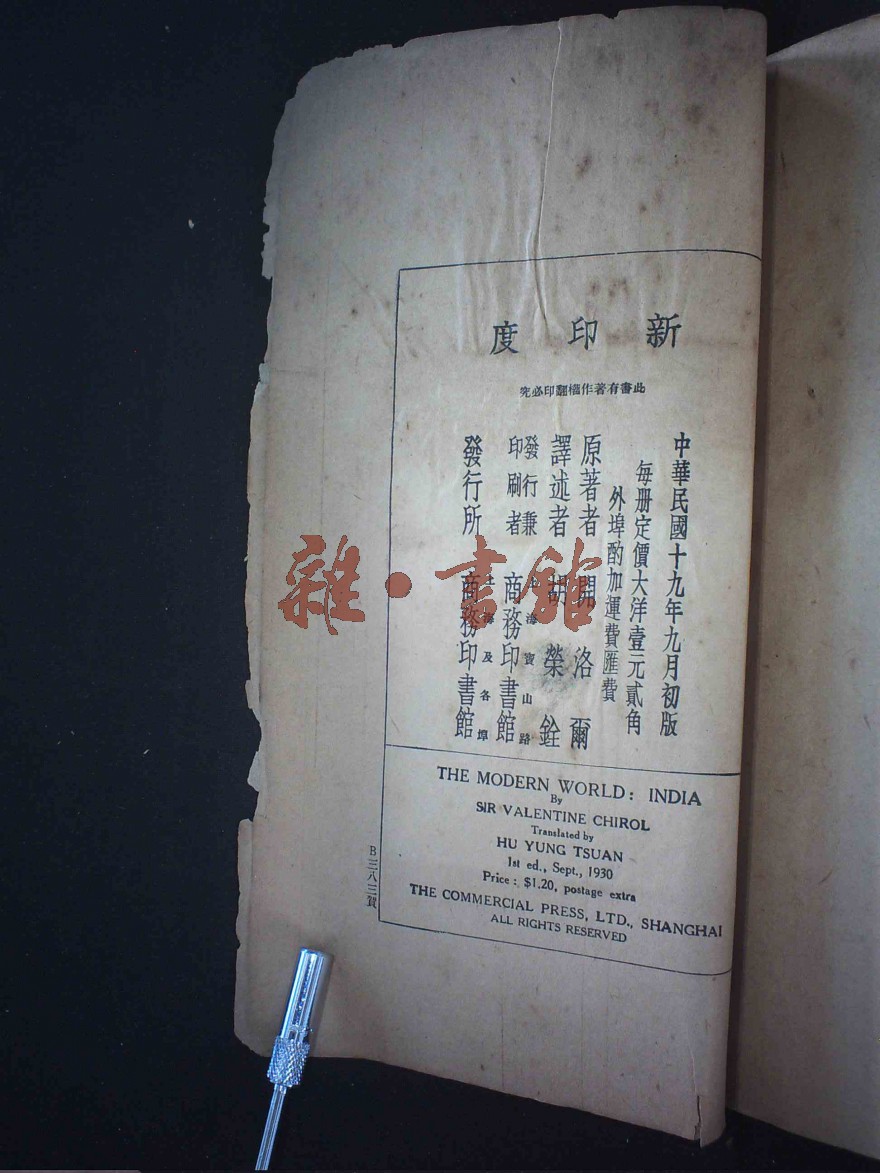 新印度
此書有著作權翻印必究
中華民國十九年九月初版
每册定價大洋壹元貳角
外埠酌加運費匯費
原著者 開洛爾
譯述者 胡榮銓
發行兼印刷者 上海寶山路 商務印書館
發行所 上海及各埠 商務印書館
THE MODERN WORLD: INDIA
By
SIR VALENTINE CHIROL
Translated by
HU YUNG TSUAN
1st ed., Sept., 1930
Price: $1.20, postage extra
THE COMMERCIAL PRESS, LTD., SHANGHAI
ALL RIGHTS RESERVED
B三八三賀
雜·書館